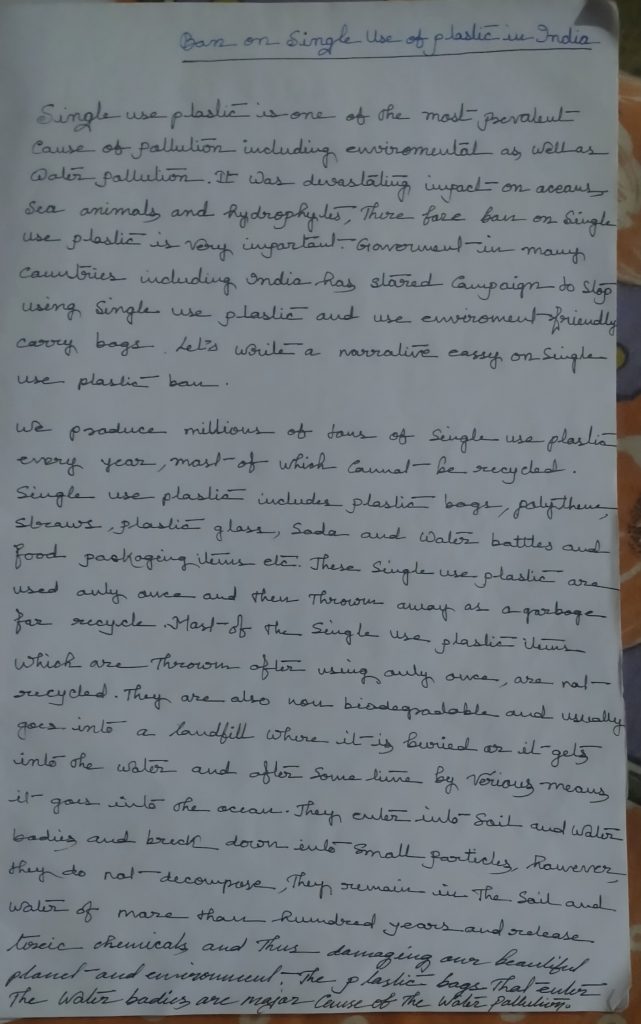 Ban on Single Use of plastic in India
Single use plastic is one of the most prevalent
cause of pollution including enviromental as well as
Water pollution. It was devastating impact on oceans,
Sea animals and hydrophytes, There fore ban on Single
use plastic is very important. Goverment in many
Countries including India has stared Campaign to Stop
using Single use plastic and use enviroment-friendly
carry bags. Let's write a narrative eassy on Single
use plastic ban.
We produce millions of tons of Single use plastic
every year, most of which Cannot be recycled.
Single use plastic includes plastic bags, polythene,
Straws, plastic glass, Soda and Water bottles and
food packageing items etc. These Single use plastic are
used only once and then Thrown away as a garbage
for recycle. Most of the Single use plastic items
which are Thrown after using only once, are not
recycled. They are also non biodegradable and usually
goes into a landfill where it is buried or it gets
into the water and after Some time by verious means
it goes into the ocean. They enter into Soil and water
bodies and breck down into Small particles, however,
they do not decompose, They remain in The Soil and
water of more than hundred years and release
toxic chemicals and Thus damaging our beautiful
planet and environment. The plastic bags That enter
The Water bodies are major Cause of The Water Pollution.